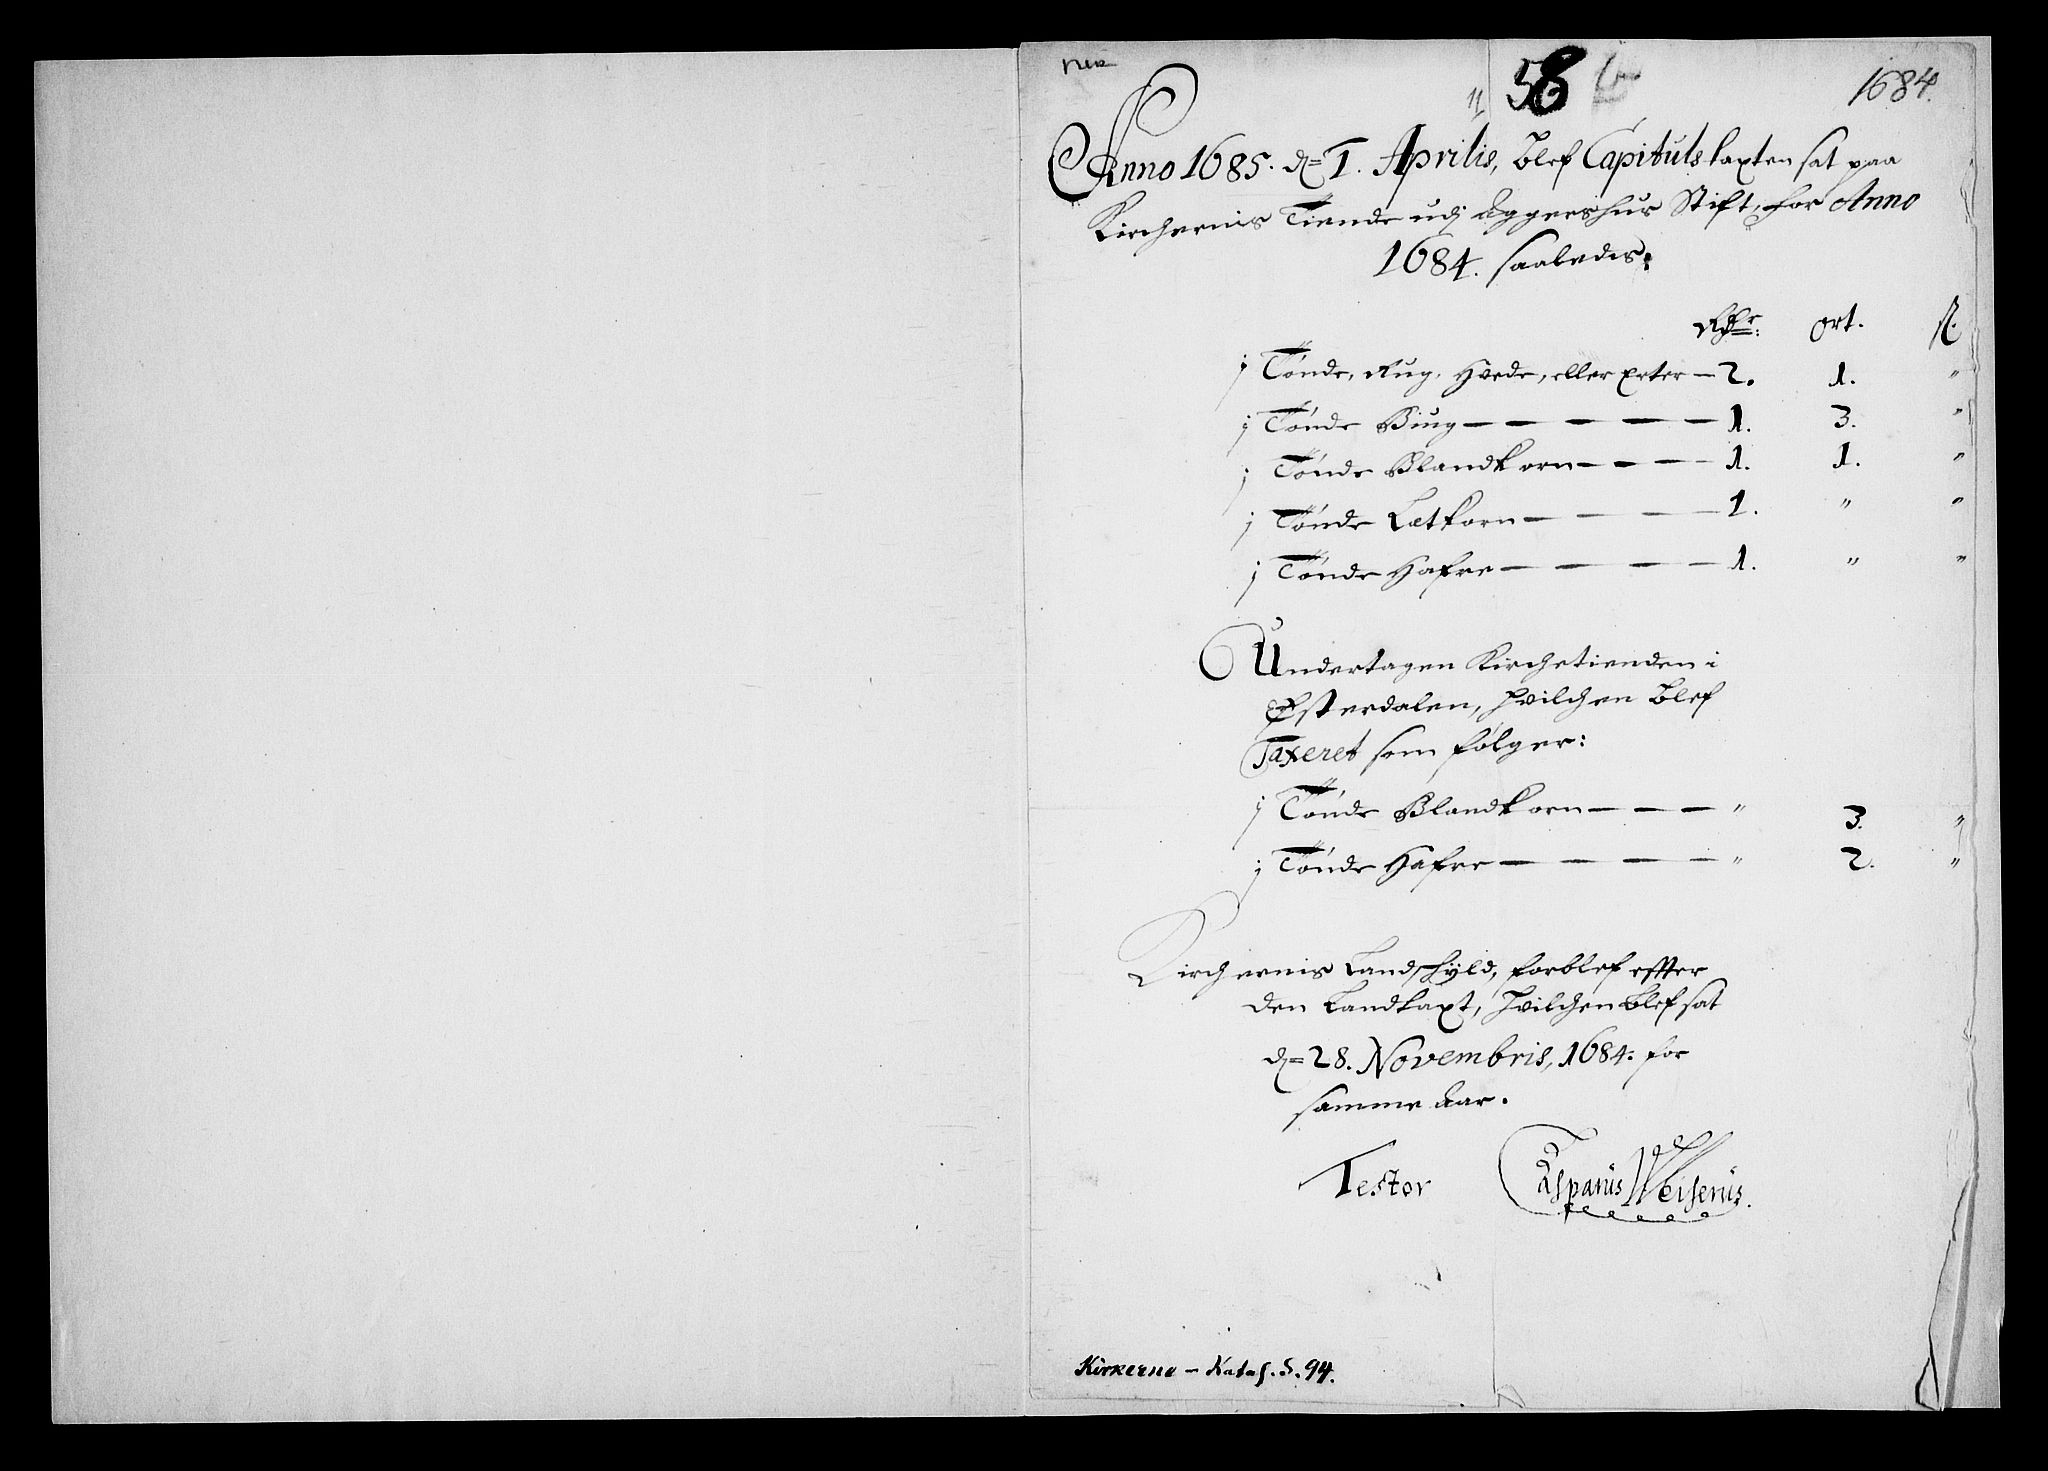 58
1684.
Anno 1685. d= 1. Aprilis, blef Capituls taxten sat paa
Kirchernis Tiende udj Aggershus Stift, for Anno
1684. saaledis:
Rdlr: ort. ß.
j Tønde, Rug, Hvede, eller Erter — 2. 1. "
j Tønde Biug — — — — — 1. 3. "
j Tønde Blandkorn — — — 1. 1. "
j Tønde Letkorn — — — 1. " "
j Tønde Hafre — — — — 1. " "
Undertagen Kirchetienden i
Østerdalen, hvilchen blef
Taxeret som følger:
j Tønde Blandkorn — — — " 3. "
j Tønde Hafre — — — — " 2. "
Kirchernis Landschyld, forblef effter
den Landtaxt, hvilchen blef sat
d= 28. Novembris, 1684. for
samme Aar.
Testor Casparus Weiserus.
Kirkerne – Katal. S. 94.